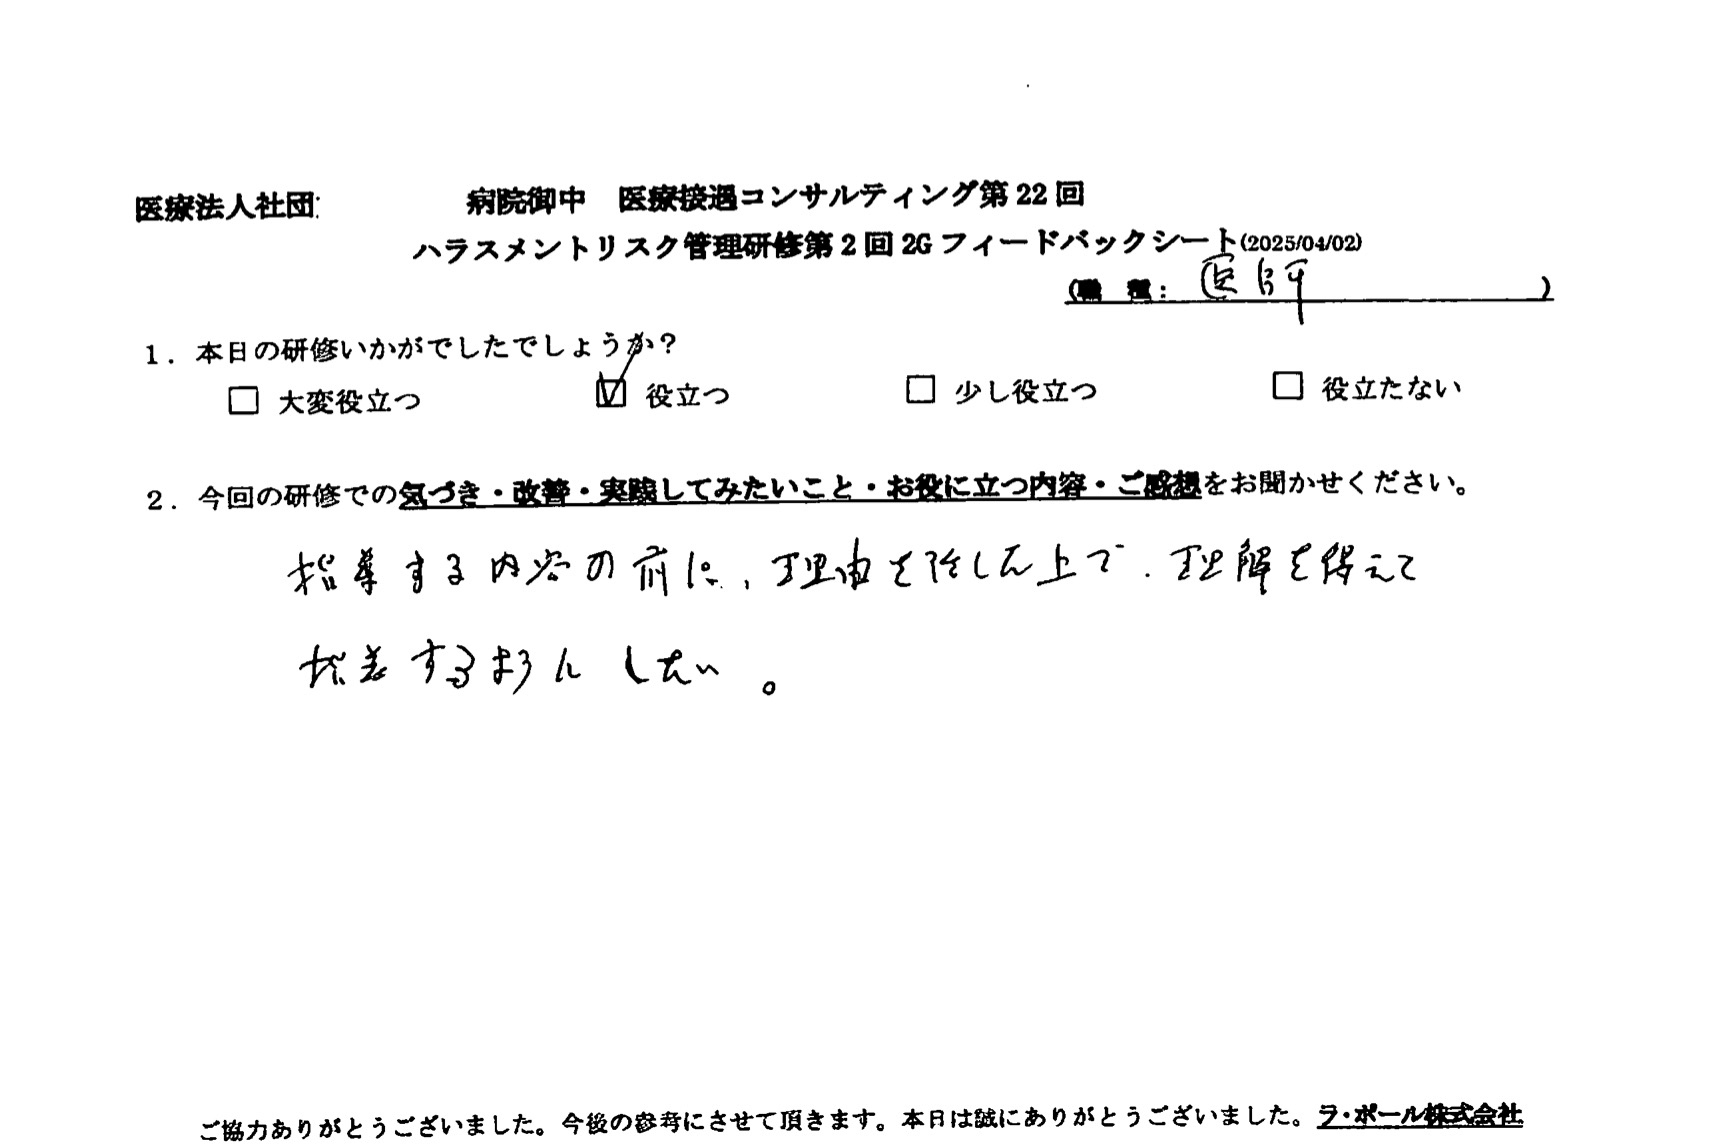 医療法人社団 病院御中 医療接遇コンサルティング第22回
ハラスメントリスク管理研修第2回2Gフィードバックシート(2025/04/02)
(職 種: 医師 )
1. 本日の研修いかがでしたでしょうか?
□ 大変役立つ ☑ 役立つ □ 少し役立つ □ 役立たない
2. 今回の研修での気づき・改善・実践してみたいこと・お役に立つ内容・ご感想をお聞かせください。
指導する内容の前に、理由を話した上で、理解を得えて
指導するようにしたい。
ご協力ありがとうございました。今後の参考にさせて頂きます。本日は誠にありがとうございました。ラ・ポール株式会社